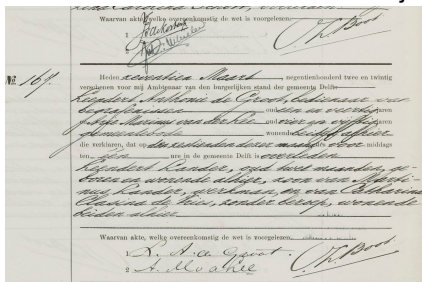 Waarvan akte, welke overeenkomstig de wet is voorgelezen.
1
2
Nº 167.
Heden zeventien Maart, negentienhonderd twee en twintig
verschenen voor mij Ambtenaar van den burgerlijken stand der gemeente Delft:
Leendert Antonie de Groot, bidienaar van
begrafenissen oud een en veertig jaren
en oud vier en vijftig jaren
gemeentebode wonende beiden alhier
die verklaren, dat op den zestienden dezer maand des voor middags
ten één ure in de gemeente Delft is overleden
Leendert Kander, oud twee maanden, ge-
boren en wonende alhier, zoon van Mari-
nus Kander, werkman, en van Catharina
Clasina de Vries, zonder beroep, wonende
beiden alhier
Waarvan akte, welke overeenkomstig de wet is voorgelezen.
1 L. A. de Groot
2 A. M.